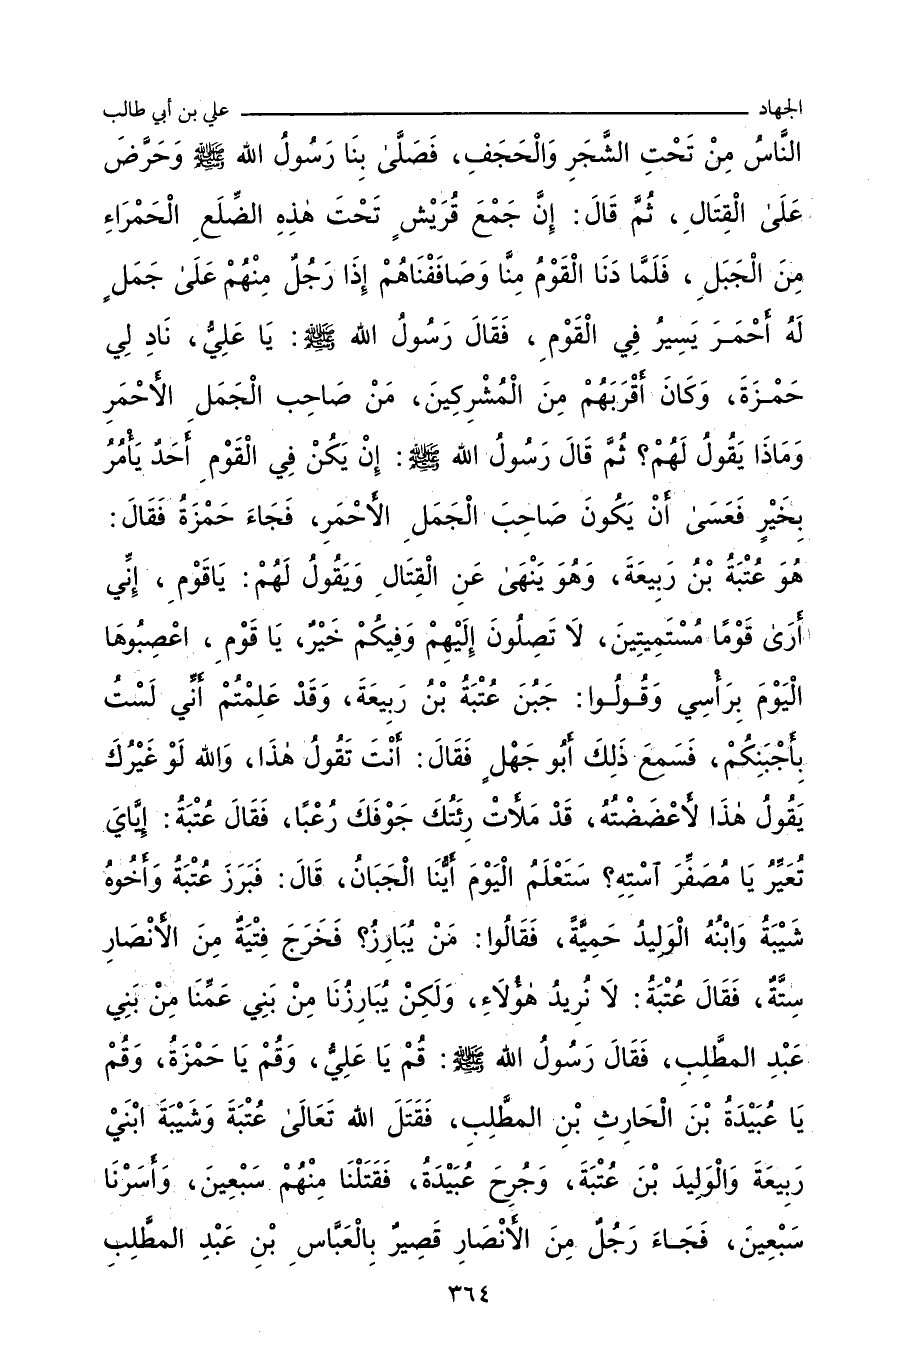 الجهاد ــــــــــــــــــــــــــــــــــــــــــــــــ علي بن أبي طالب
النَّاسُ مِنْ تَحْتِ الشَّجَرِ وَالْحَجَفِ، فَصَلَّىٰ بِنَا رَسُولُ الله ﷺ وَحَرَّضَ
عَلَىٰ الْقِتَالِ، ثُمَّ قَالَ: إِنَّ جَمْعَ قُرَيْشٍ تَحْتَ هٰذِهِ الضِّلَعِ الْحَمْرَاءِ
مِنَ الْجَبَلِ، فَلَمَّا دَنَا الْقَوْمُ مِنَّا وَصَافَفْنَاهُمْ إِذَا رَجُلٌ مِنْهُمْ عَلَىٰ جَمَلٍ
لَهُ أَحْمَرَ يَسِيرُ فِي الْقَوْمِ، فَقَالَ رَسُولُ الله ﷺ: يَا عَلِيُّ، نَادِ لِي
حَمْزَةَ، وَكَانَ أَقْرَبَهُمْ مِنَ الْمُشْرِكِينَ، مَنْ صَاحِب الْجَمَلِ الأَحْمَرِ
وَمَاذَا يَقُولُ لَهُمْ؟ ثُمَّ قَالَ رَسُولُ الله ﷺ: إِنْ يَكُنْ فِي الْقَوْمِ أَحَدٌ يَأْمُرُ
بِخَيْرٍ فَعَسَىٰ أَنْ يَكُونَ صَاحِبَ الْجَمَلِ الأَحْمَرِ، فَجَاءَ حَمْزَةُ فَقَالَ:
هُوَ عُتْبَةُ بْنُ رَبِيعَةَ، وَهُوَ يَنْهَىٰ عَنِ الْقِتَالِ وَيَقُولُ لَهُمْ: يَاقَوْمِ، إِنِّي
أَرَىٰ قَوْمًا مُسْتَمِيتِينَ، لَا تَصِلُونَ إِلَيْهِمْ وَفِيكُمْ خَيْرٌ، يَا قَوْمِ، اعْصِبُوهَا
الْيَوْمَ بِرَأْسِي وَقُولُوا: جَبُنَ عُتْبَةُ بْنُ رَبِيعَةَ، وَقَدْ عَلِمْتُمْ أَنِّي لَسْتُ
بِأَجْبَنِكُمْ، فَسَمِعَ ذَلِكَ أَبُو جَهْلٍ فَقَالَ: أَنْتَ تَقُولُ هٰذَا، وَالله لَوْ غَيْرُكَ
يَقُولُ هٰذَا لأَعْضَضْتُهُ، قَدْ مَلأَتْ رِئَتُكَ جَوْفَكَ رُعْبًا، فَقَالَ عُتْبَةُ: إِيَّايَ
تُعَيِّرُ يَا مُصَفِّرَ آسْتِهِ؟ سَتَعْلَمُ الْيَوْمَ أَيُّنَا الْجَبَانُ، قَالَ: فَبَرَزَ عُتْبَةُ وَأَخُوهُ
شَيْبَةُ وَابْنُهُ الْوَلِيدُ حَمِيَّةً، فَقَالُوا: مَنْ يُبَارِزُ؟ فَخَرَجَ فِتْيَةٌ مِنَ الأَنْصَارِ
سِتَّةٌ، فَقَالَ عُتْبَةُ: لَا نُرِيدُ هٰؤُلَاءِ، وَلَكِنْ يُبَارِزُنَا مِنْ بَنِي عَمِّنَا مِنْ بَنِي
عَبْدِ المطَّلِبِ، فَقَالَ رَسُولُ الله ﷺ: قُمْ يَا عَلِيُّ، وَقُمْ يَا حَمْزَةُ، وَقُمْ
يَا عُبَيْدَةُ بْنَ الْحَارِثِ بْنِ المطَّلِبِ، فَقَتَلَ الله تَعَالَىٰ عُتْبَةَ وَشَيْبَةَ ابْنَيْ
رَبِيعَةَ وَالْوَلِيدَ بْنَ عُتْبَةَ، وَجُرِحَ عُبَيْدَةُ، فَقَتَلْنَا مِنْهُمْ سَبْعِينَ، وَأَسَرْنَا
سَبْعِينَ، فَجَاءَ رَجُلٌ مِنَ الأَنْصَارِ قَصِيرٌ بِالْعَبَّاسِ بْنِ عَبْدِ المطَّلِبِ
٣٦٤